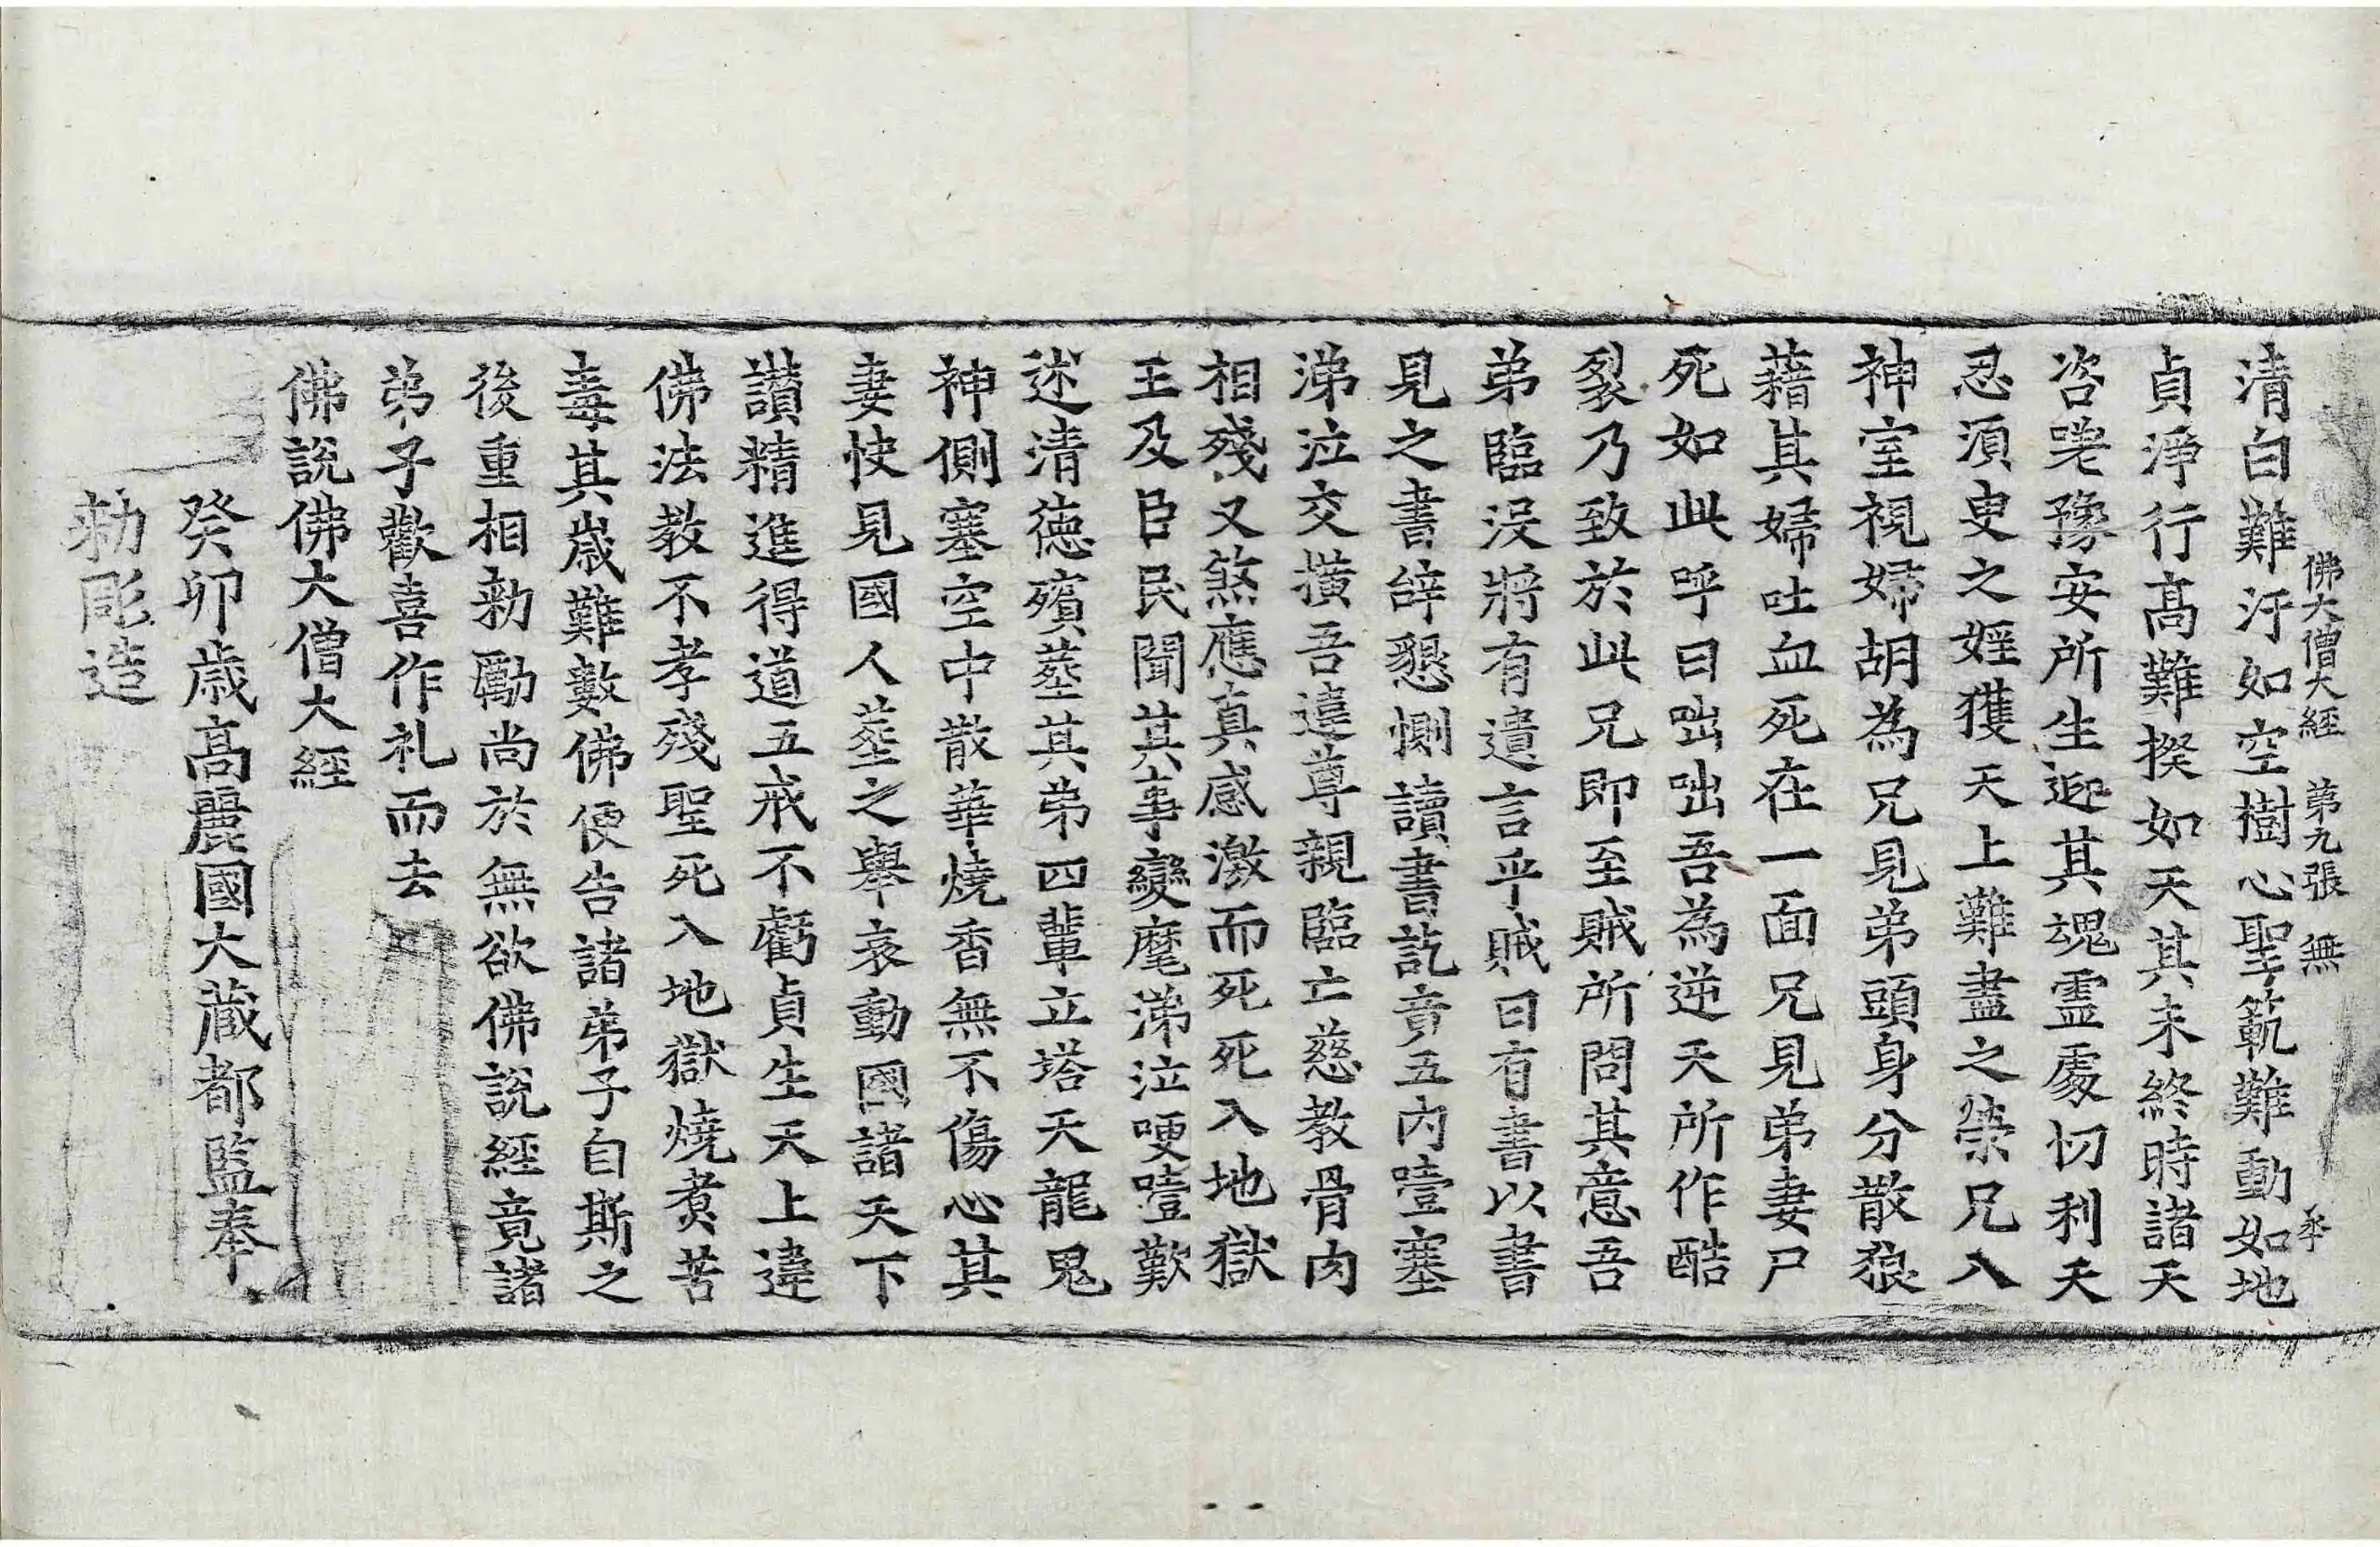 佛大僧大經 第九張 無
清白難汙如空樹心聖範難動如地
貞淨行高難揆如天其未終時諸天
咨嗟豫安所生迎其魂靈處忉利天
忍須臾之婬獲天上難盡之榮兄入
神室視婦胡為兄見弟頭身分散狼
藉其婦吐血死在一面兄見弟妻尸
死如此呼曰咄咄吾為逆天所作酷
裂乃致於此兄即至賊所問其意吾
弟臨沒將有遺言乎賊曰有書以書
見之書辞懇惻讀書訖竟五内噎塞
涕泣交撗吾違尊親臨亡慈教骨肉
相殘又煞應真感激而死死入地獄
王及臣民聞其事變麾涕泣哽噎歎
述清德殯葬其弟四輩立塔天龍鬼
神側塞空中散華燒香無不傷心其
妻快見國人葬之舉哀動國諸天下
讃精進得道五戒不虧貞生天上違
佛法教不孝殘聖死入地獄燒煑苦
毒其歲難數佛便告諸弟子自斯之
後重相勑勵尚於無欲佛說經竟諸
弟子歡喜作礼而去
佛說佛大僧大經
癸卯歲高麗國大藏都監奉
勑彫造